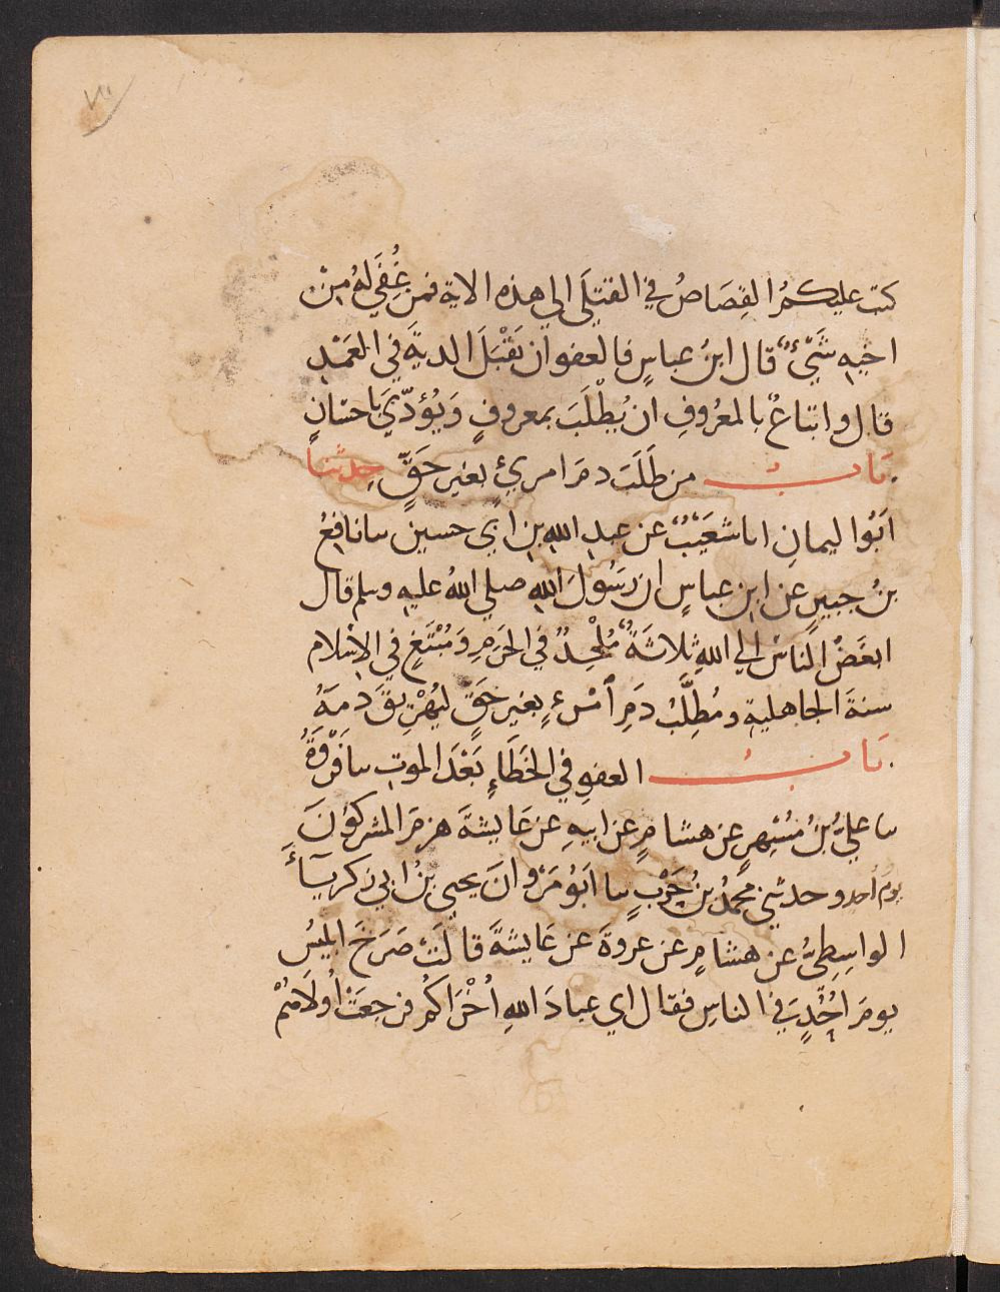 كتب عليكمُ القِصَاصُ في القتلَى الي هذه الاية فمن عُفِيَ لهُ مِنْ
اخيهِ شَيْءٌ قال ابنُ عباسٍ فالعفو ان تَقْبَلَ الديةَ في العَمْدِ
قال واتباعٌ بالمعْرُوفِ ان يُطْلَبَ بمعروفٍ وَيُؤدّيَ باحسَانٍ
بَابُ من طَلَبَ دمَ امرئٍ بغيرِ حَقٍّ حدثنا
ابُوا ليمانِ انا شعَيْبٌ عن عبدِ اللهِ بنِ ابي حسين نا نافعُ
بنُ جبيرٍ عن ابنِ عباسٍ ان رسُولَ اللهِ صلي اللهُ عليهِ وسلم قال
ابغَضُ الناسِ الي اللهِ ثلاثةٌ مُلْحِدٌ في الحَرَمِ وَمُبْتَغٍ في الاسْلام
سنةَ الجاهليةِ ومُطَّلِبُ دَمِ امْرءٍ بغيرِ حَقٍّ ليُهْرِيقَ دَمَهُ
بَابُ العفوِ في الخَطَاءِ بَعْدَ الموتِ نا فَرْوَةُ
نا عليُّ بنُ مُسْهِرٍ عن هشامٍ عن ابيهِ عن عَايشةَ هزمَ المشركوُنَ
يومَ اُحدٍ وحدثني محمدُ بنُ حَرْبٍ نا ابَوُ مَرْوانَ يحيي بنُ ابي زكريآءَ
الواسِطِيُّ عن هشامٍ عن عروةَ عن عَايشةَ قالَتْ صَرَخَ ابليسُ
يومَ اُحُدٍ في الناسِ فقال اي عبادَ اللهِ اُخْرَاكُم فرجعَتْ اُولَاهُمْ